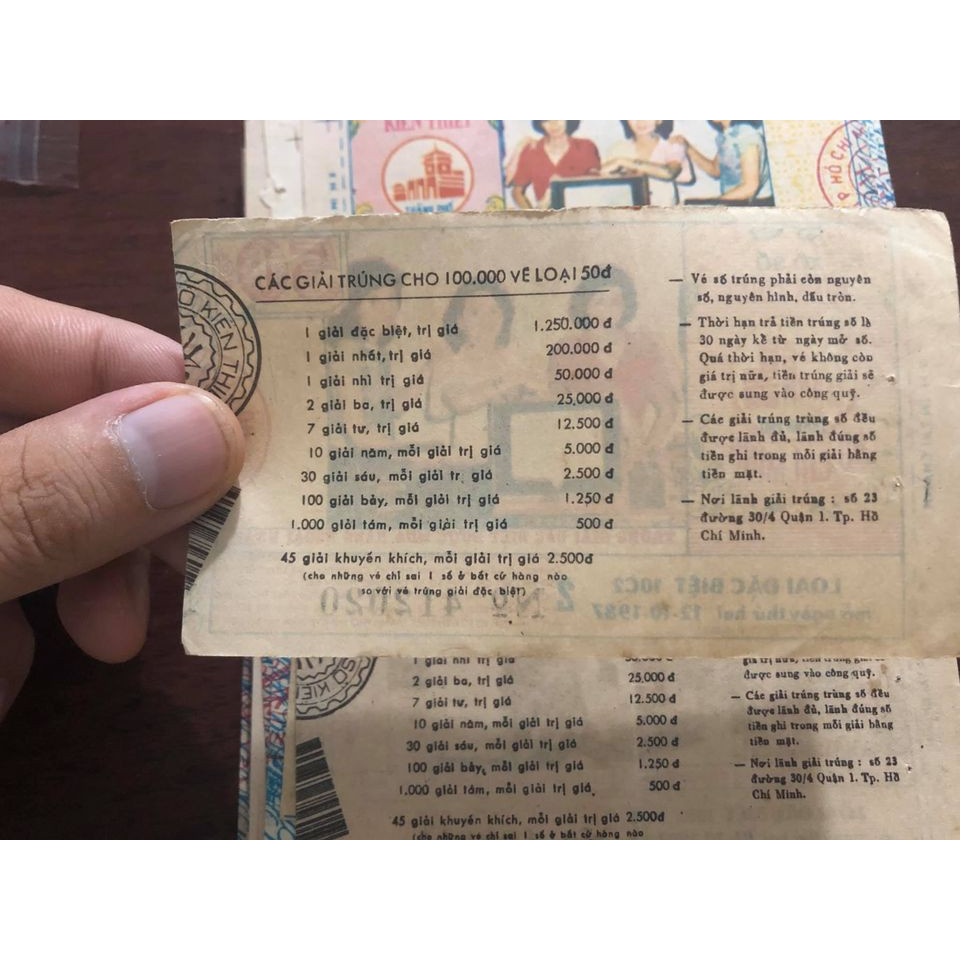 KIẾN THIẾT
THÀNH PHỐ
P HỒ CHÍ
CÁC GIẢI TRÚNG CHO 100.000 VÉ LOẠI 50đ
1 giải đặc biệt, trị giá 1.250.000 đ
1 giải nhất, trị giá 200.000 đ
1 giải nhì trị giá 50.000 đ
2 giải ba, trị giá 25,000 đ
7 giải tư, trị giá 12.500 đ
10 giải năm, mỗi giải trị giá 5.000 đ
30 giải sáu, mỗi giải trị giá 2.500 đ
100 giải bảy, mỗi giải trị giá 1.250 đ
1.000 giải tám, mỗi giải trị giá 500 đ
45 giải khuyến khích, mỗi giải trị giá 2.500đ
(cho những vé chỉ sai 1 số ở bất cứ hàng nào
so với vé trúng giải đặc biệt)
— Vé số trúng phải còn nguyên
số, nguyên hình, dấu tròn.
— Thời hạn trả tiền trúng số là
30 ngày kể từ ngày mở số.
Quá thời hạn, vé không còn
giá trị nữa, tiền trúng giải sẽ
được sung vào công quỹ.
— Các giải trúng trùng số đều
được lãnh đủ, lãnh đúng số
tiền ghi trong mỗi giải bằng
tiền mặt.
— Nơi lãnh giải trúng : số 23
đường 30/4 Quận 1. Tp. Hồ
Chí Minh.
SỐ KIẾN THIẾT
LOẠI ĐẶC BIỆT 10C2
mở ngày thứ hai 12-10-1987
Z Nº 412020
1 giải nhì trị giá 50.000 đ
2 giải ba, trị giá 25,000 đ
7 giải tư, trị giá 12.500 đ
10 giải năm, mỗi giải trị giá 5.000 đ
30 giải sáu, mỗi giải trị giá 2.500 đ
100 giải bảy, mỗi giải trị giá 1.250 đ
1.000 giải tám, mỗi giải trị giá 500 đ
45 giải khuyến khích, mỗi giải trị giá 2.500đ
(cho những vé chỉ sai 1 số ở bất cứ hàng nào
giá trị nữa, tiền trúng giải sẽ
được sung vào công quỹ.
— Các giải trúng trùng số đều
được lãnh đủ, lãnh đúng số
tiền ghi trong mỗi giải bằng
tiền mặt.
— Nơi lãnh giải trúng : số 23
đường 30/4 Quận 1. Tp. Hồ
Chí Minh.
SỐ KIẾN